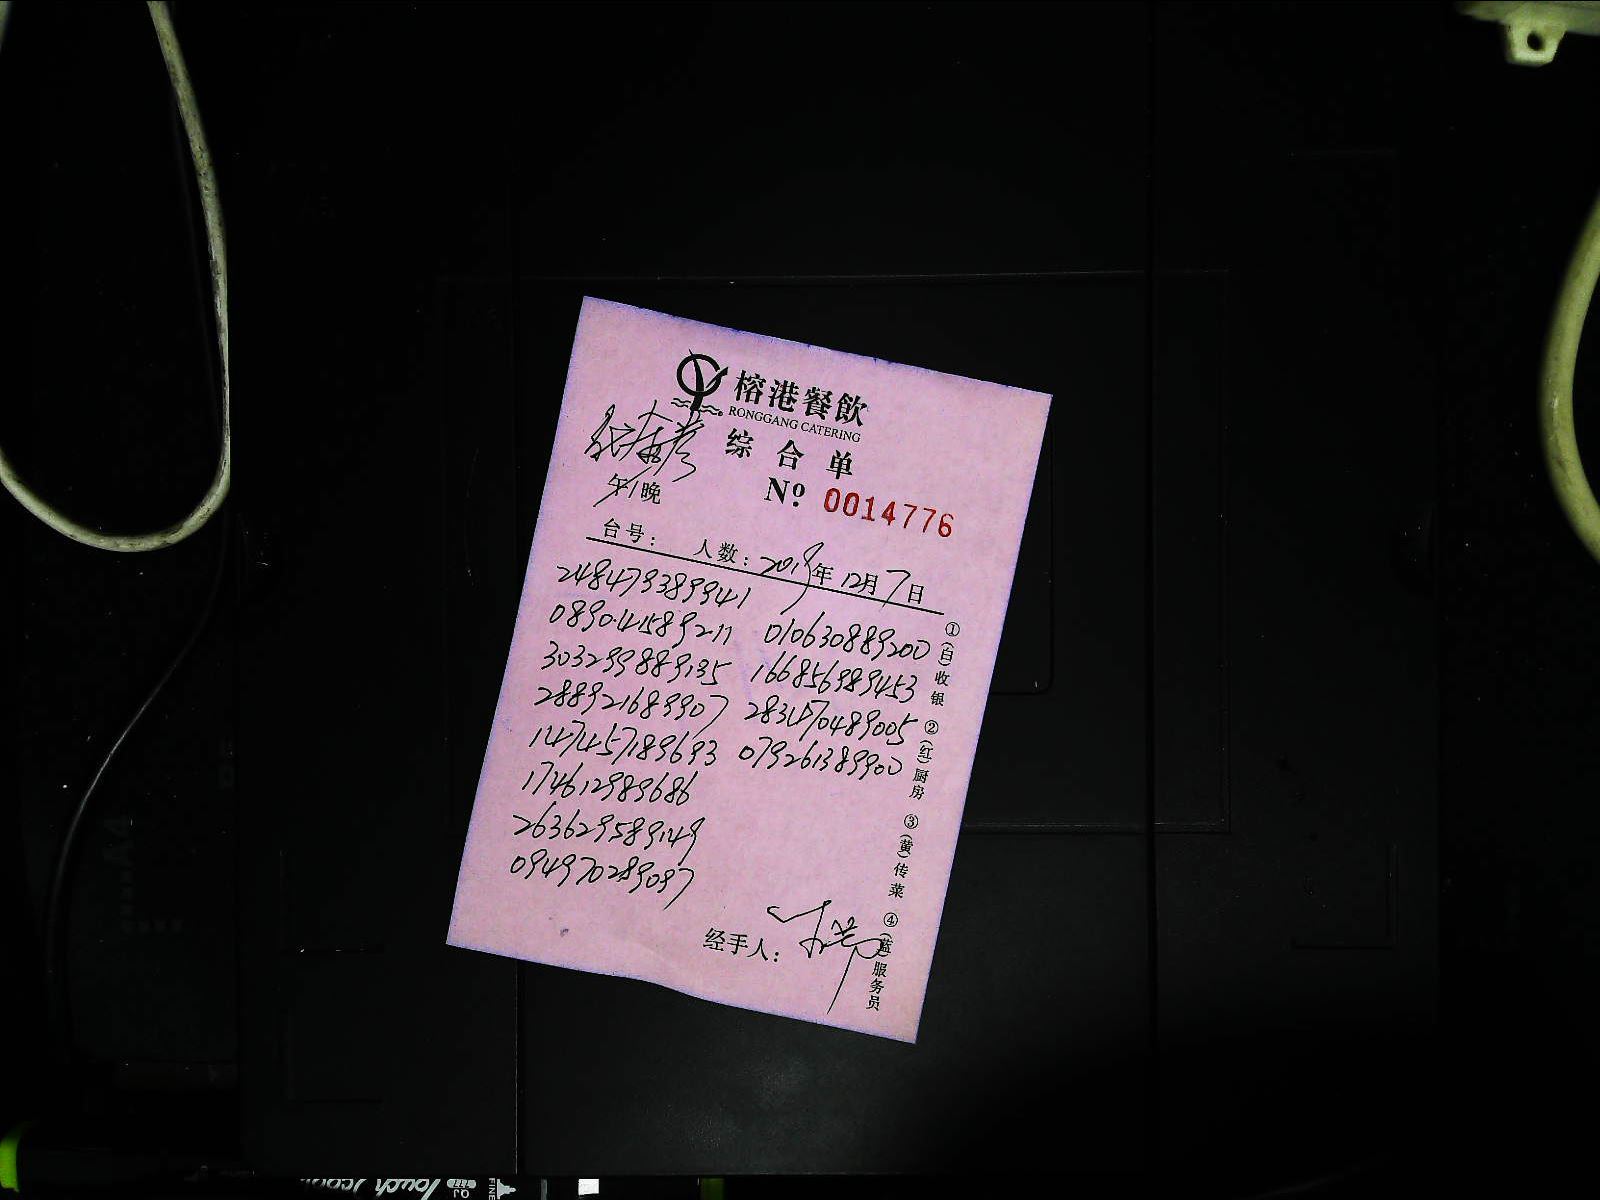 榕港餐飲
RONGGANG CATERING
综合单
午/晚 № 0014776
台号: 人数: 2019年12月7日
248479389941
089041589211 010630889200
303299889135 166856989453
288921689907 283470489005
147457189693 079261389900
174612989686
263629589149
094970289097
经手人:
①(白)收银 ②(红)厨房 ③(黄)传菜 ④(蓝)服务员